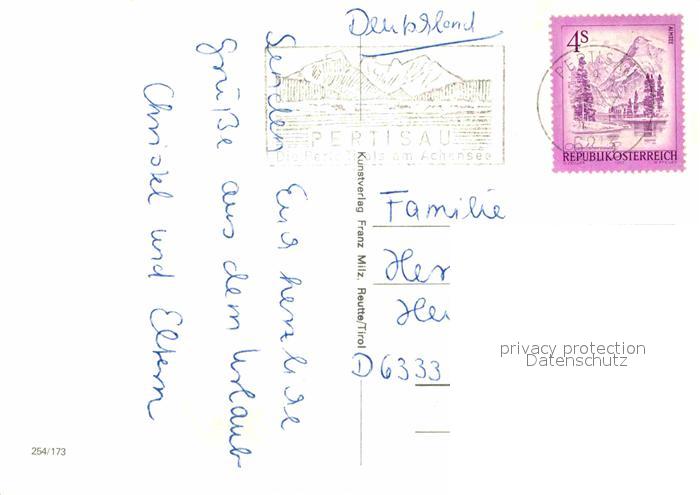 Deutschland
4S
REPUBLIK ÖSTERREICH
PERTISAU
Die Perle Tirols am Achensee
Senden Euch herzliche
Grüße aus dem Urlaub
Christel und Eltern
Kunstverlag Franz Milz, Reutte/Tirol
Familie
Her
Hei
D 6333
privacy protection
Datenschutz
254/173